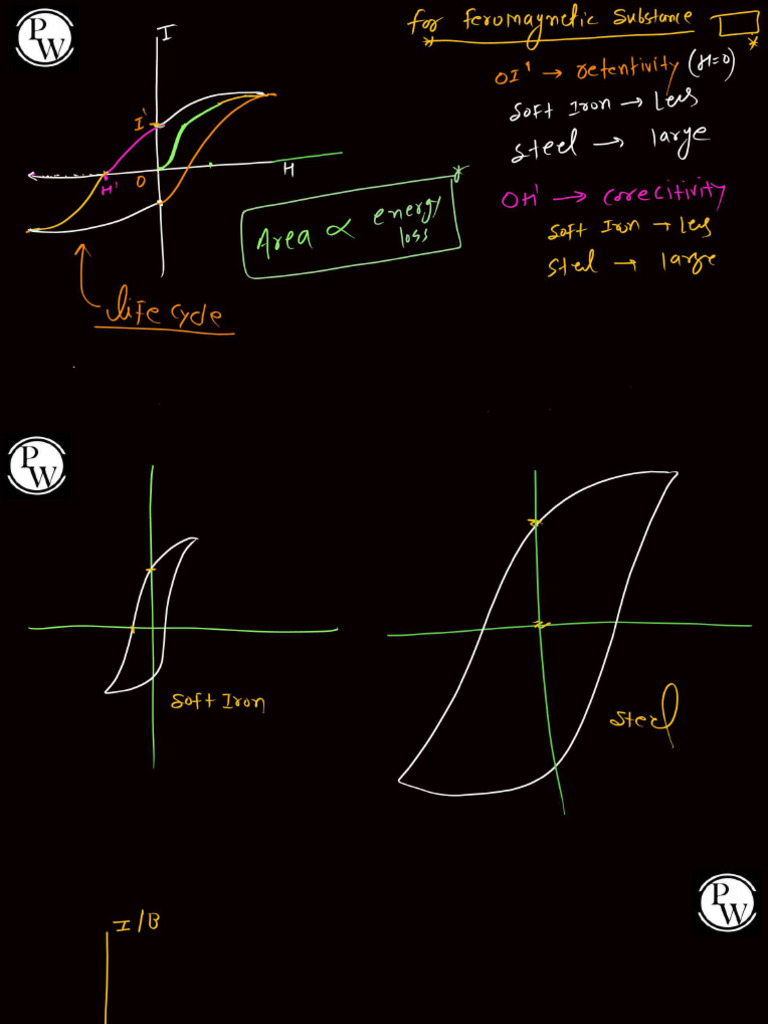 PW
I
for feromagnetic substance
OI' → retentivity (H=0)
I'
Soft Iron → Less
Steel → large
H' O H
OH' → corecitivity
Area ∝ energy loss
Soft Iron → Less
Steel → large
life cycle
PW
Soft Iron
Steel
PW
I/B